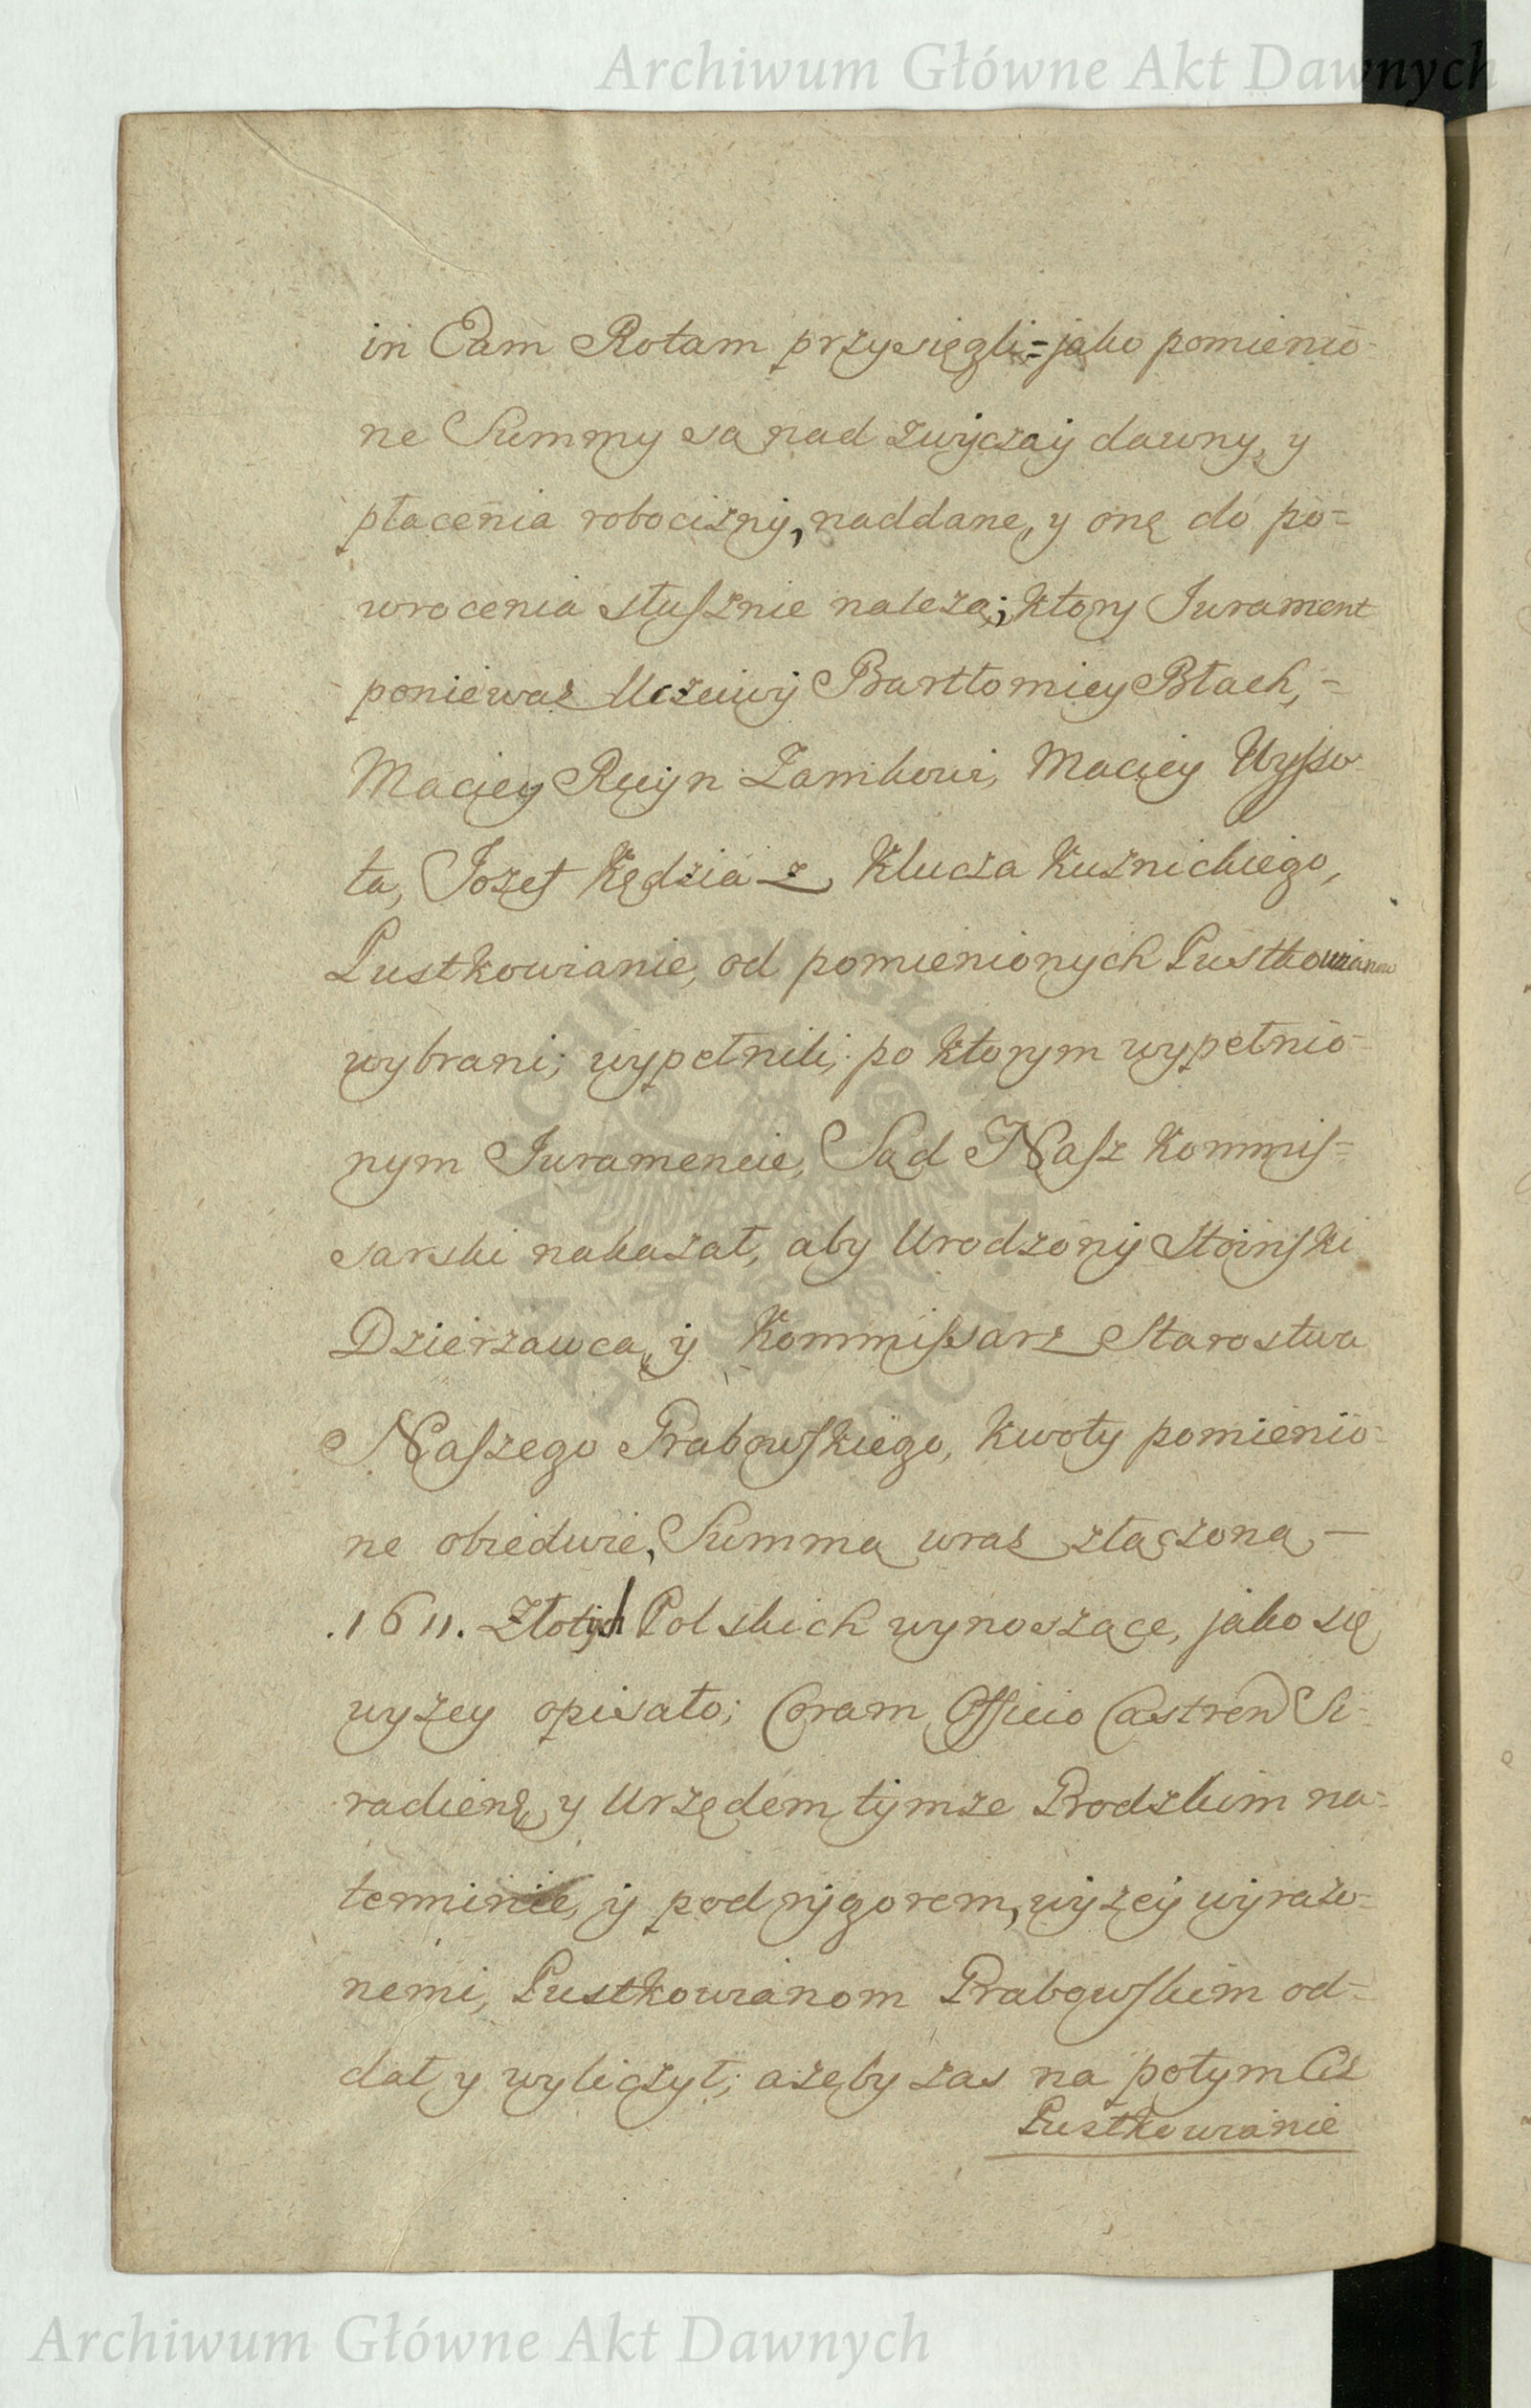 Archiwum Główne Akt Dawnych
in Eam Rotam przysięgli = jako pomienio-
ne Summy są nad zwyczaÿ dawny, y
płacenia robociznÿ, naddane, y onę do po=
wrocenia słuſznie należą; ktory Jurament
ponieważ Uczciwÿ Bartłomiey Błach, =
Maciey Ręÿn Zamkowi, Maciey Wyſso-
ta, Jozef Kędzia z Klucza Kuznickiego,
Pustkowianie, od pomienionych Pustkowianow
wybrani; wypełnili; po ktorym wypełnio-
nym Juramencie, Sąd Naſz Kommiſ=
sarski nakazał, aby Urodzonÿ Stoinſki
Dzierzawca, ÿ Kommiſsarz Starostwa
Naſzego Grabowſkiego, kwoty pomienio-
ne obiedwie, Summą wraz złączoną —
.1611. Złotÿch Polskich wynoszące, jako się
wyzey opisało; Coram Officio Castren Si-
radien, y Urzędem tÿmze Grodzkim na=
terminie, ÿ pod rÿgorem, wÿzeÿ wÿrażo-
nemi, Pustkowianom Grabowſkim od=
dał, y wyliczył; ażeby zas na potym Ciz
Pustkowianie
ARCHIWUM GŁÓWNE AKT DAWNYCH
Archiwum Główne Akt Dawnych